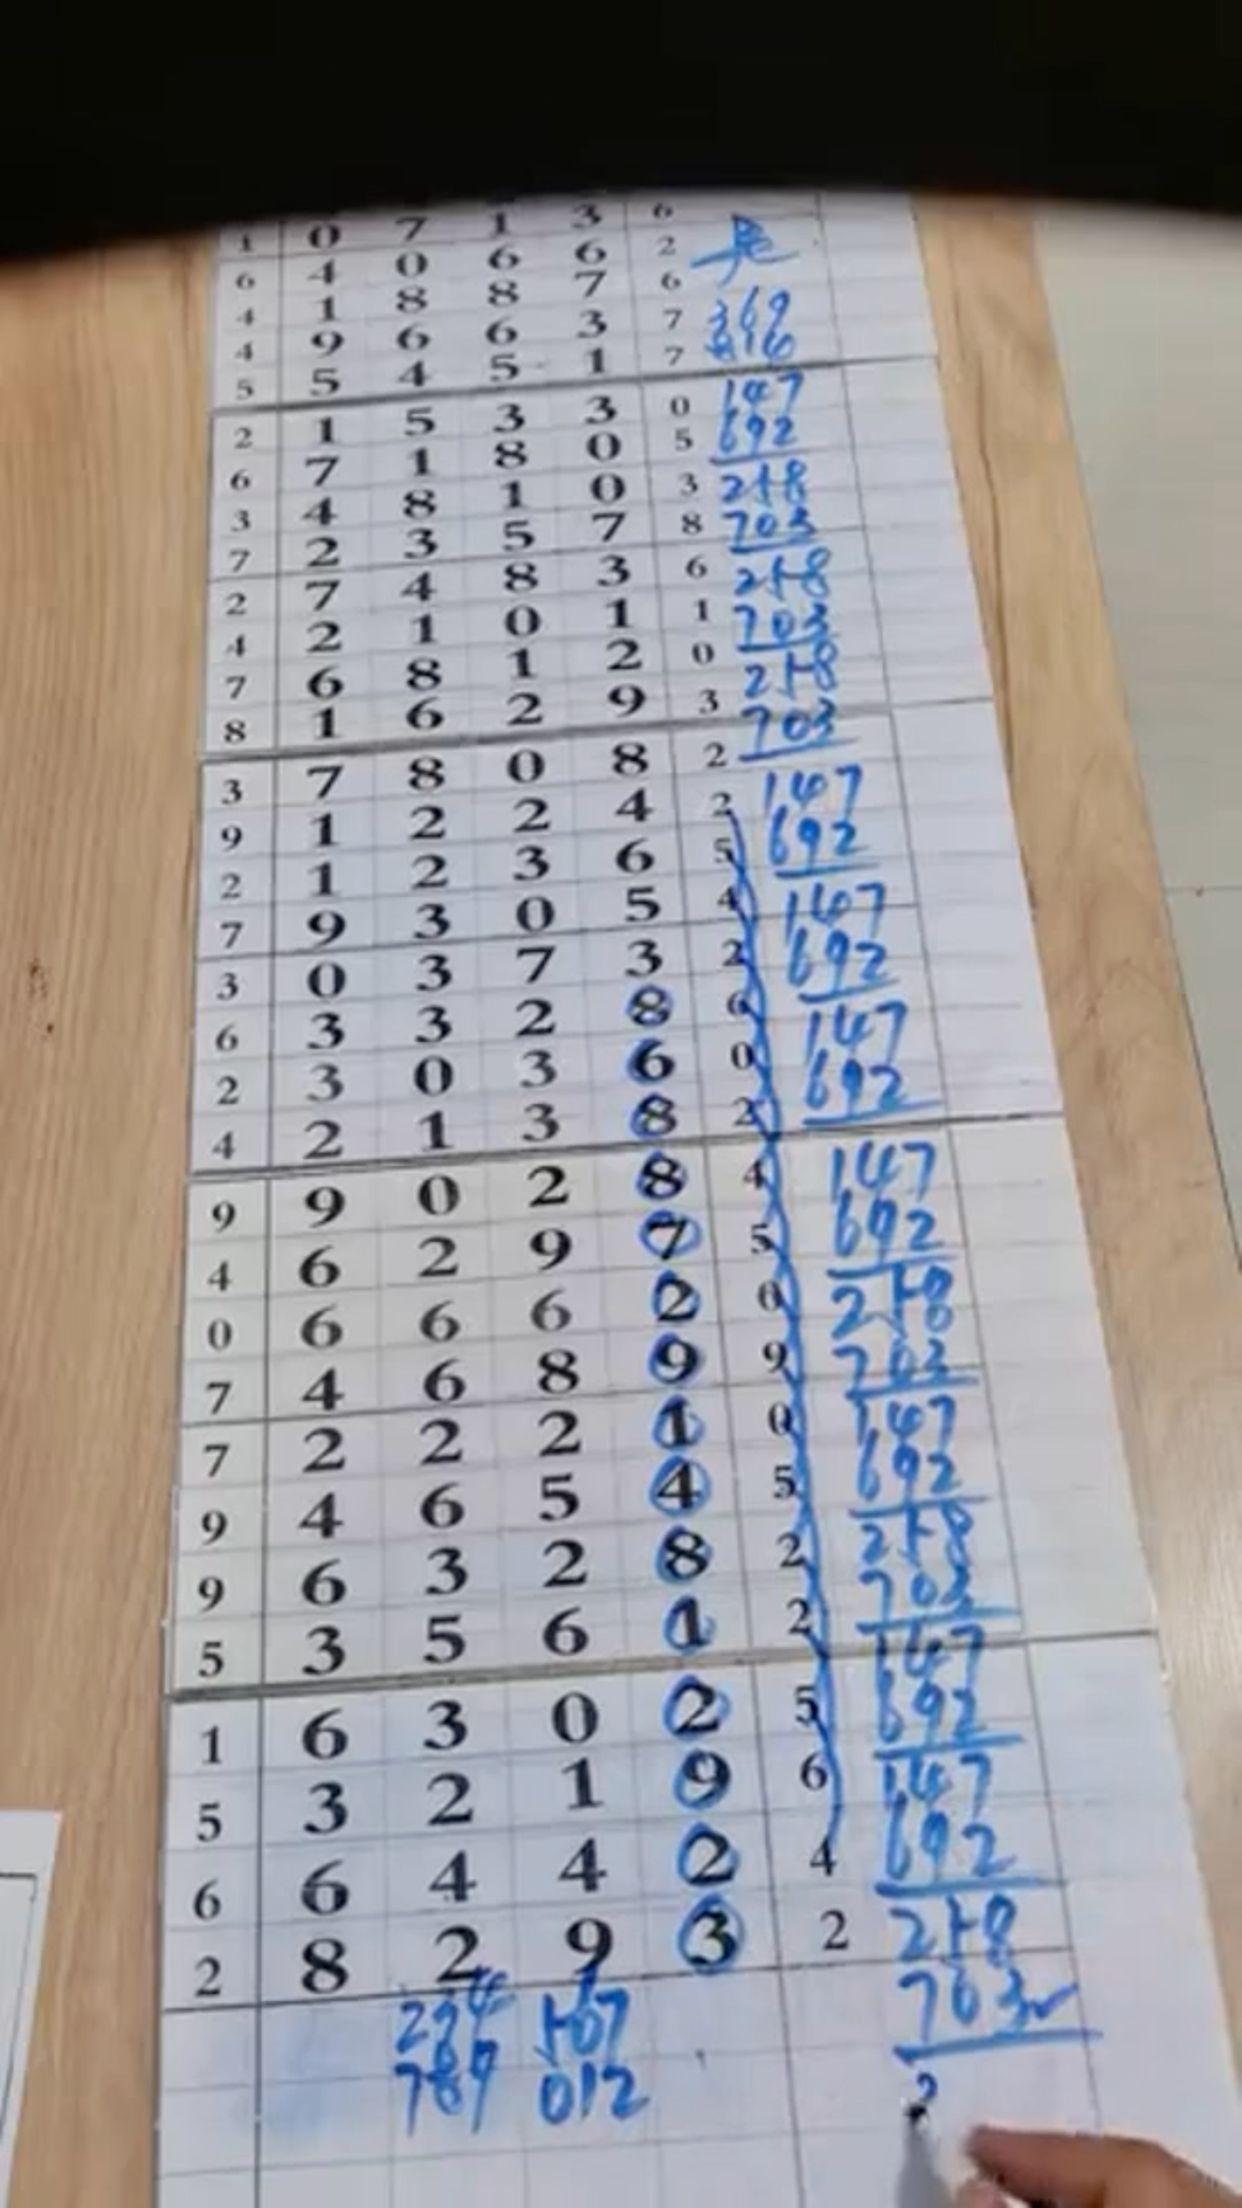 1 0 7 1 3 6
6 4 0 6 6 2 尾
4 1 8 8 7 6
4 9 6 6 3 7 369
5 5 4 5 1 7
2 1 5 3 3 0 147
6 7 1 8 0 5 692
3 4 8 1 0 3 258
7 2 3 5 7 8 703
2 7 4 8 3 6 258
4 2 1 0 1 1 703
7 6 8 1 2 0 258
8 1 6 2 9 3 703
3 7 8 0 8 2
9 1 2 2 4 2 147
2 1 2 3 6 5 692
7 9 3 0 5 4 147
3 0 3 7 3 2 692
6 3 3 2 8 6 147
2 3 0 3 6 0 692
4 2 1 3 8 2
9 9 0 2 8 4 147
4 6 2 9 7 5 692
0 6 6 6 2 0 258
7 4 6 8 9 9 703
7 2 2 2 1 0 147
9 4 6 5 4 5 692
9 6 3 2 8 2 258
5 3 5 6 1 2 703
147
1 6 3 0 2 5 692
5 3 2 1 9 6 147
6 6 4 4 2 4 692
2 8 2 9 3 2 258
234 567 703
789 012